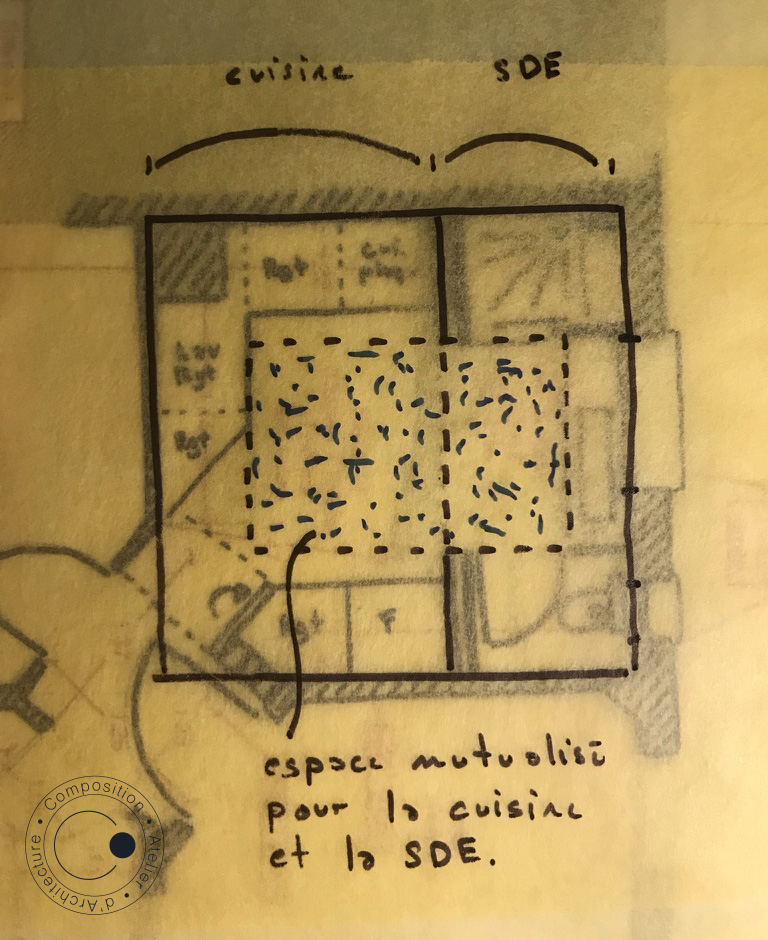 cuisine
SDE
Rgt
Cui.
Lav
Rgt
Rgt
Rgt
F
espace mutualisé
pour la cuisine
et la SDE.
Composition • Atelier • d'Architecture •